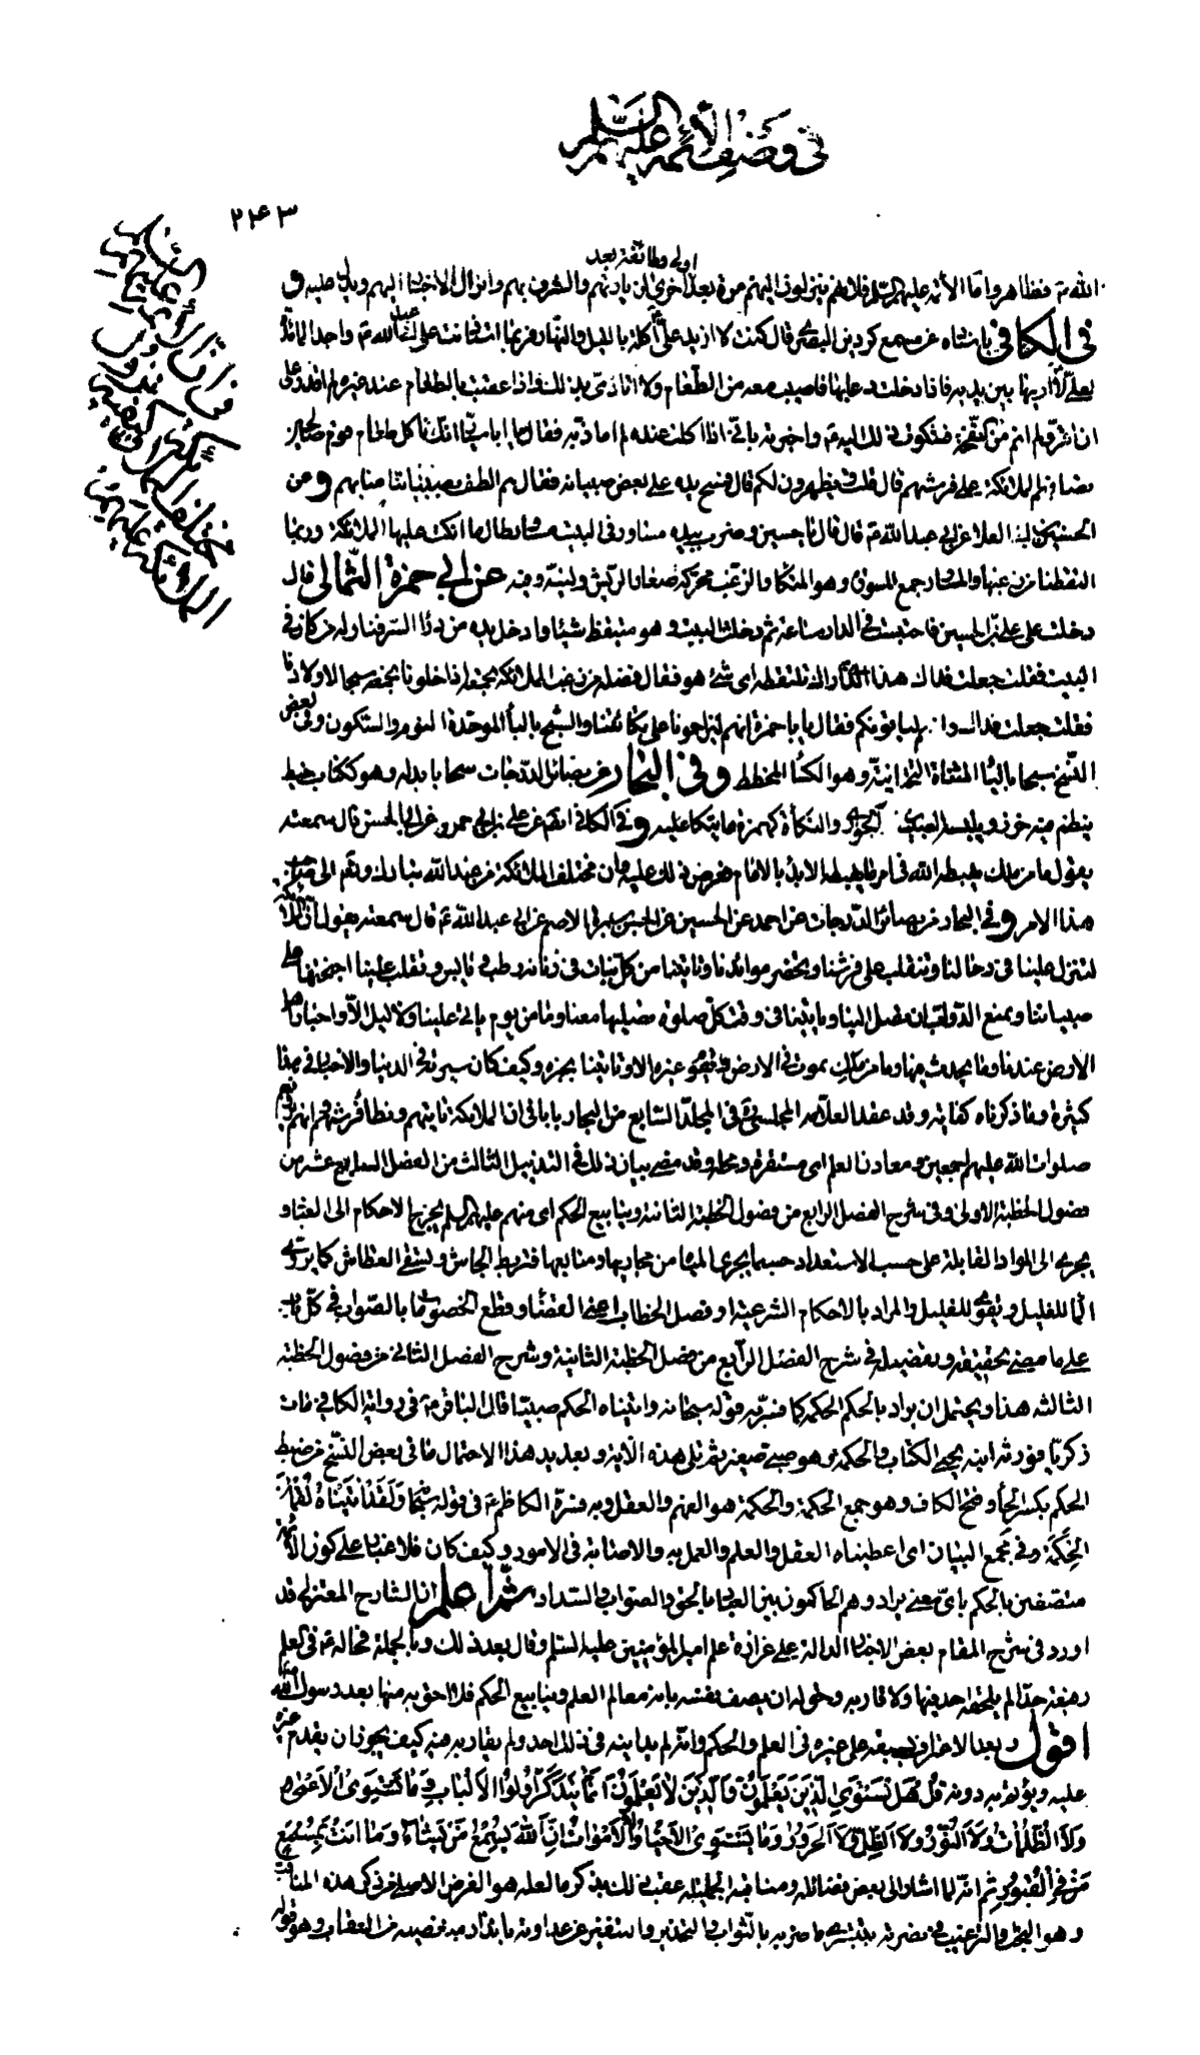 في وصف الأئمة عليهم السلام
٢٤٣
في أن الأئمة عليهم السلام
مختلف الملائكة
أولى وطائفة بعد
الله تعالى فظاهر وأما الأئمة عليهم السلام فلأنهم ينزلون إليهم مرة بعد أخرى لزيارتهم والتشرف بهم وإنزال الأخبار إليهم ويدل عليه
في الكافي بإسناده عن مسمع كردين البصري قال كنت لا أزيد على أكلة بالليل والنهار فربما استأذنت على أبي عبد الله ع وأجد المائدة
لعلي لا أراها بين يديه فإذا دخلت دعا بها فأصيب معه من الطعام ولا أتأذى بذلك وإذا عقبت بالطعام عند غيره لم أقدر على
أن أقر ولم أنم من النفخة فشكوت ذلك إليه وأخبرته بأني إذا أكلت عنده لم أتأذ به فقال يا أبا سيار إنك تأكل طعام قوم صالحين
تصافحهم الملائكة على فرشهم قال قلت ويظهرون لكم قال فمسح يده على بعض صبيانه فقال هم ألطف بصبياننا منا بهم ومن
الحسين بن أبي العلاء عن أبي عبد الله ع قال قال يا حسين وضرب بيده إلى مساور في البيت مساور طالما اتكت عليها الملائكة وربما
التقطنا من زغبها والمساور جمع المسور وهو المتكأ والزغب محركة صغار الريش ولينه وفيه عن أبي حمزة الثمالي قال
دخلت على علي بن الحسين فاحتبست في الدار ساعة ثم دخلت البيت وهو يلتقط شيئا وأدخل يده من وراء الستر فناوله من كان في
البيت فقلت جعلت فداك هذا الذي أراك تلتقطه أي شيء هو فقال فضلة من زغب الملائكة نجمعه إذا خلونا نجعله سبحا لأولادنا
فقلت جعلت فداك وإنهم ليأتونكم فقال يا أبا حمزة إنهم ليزاحمونا على تكأتنا والسبح بالباء الموحدة النوم والسكون وفي بعض
النسخ سيحا بالياء المثناة التحتانية وهو الكساء المخطط وفي البحار من بصائر الدرجات سخابا بدله وهو ككتاب خيط
ينظم فيه خرز ويلبسه الصبيان الجواري والتكأة كهمزة ما يتكأ عليه وفي الكافي أيضا عن علي بن أبي حمزة عن أبي الحسن قال سمعته
يقول ما من ملك يهبطه الله في أمر ما يهبطه إلا بدأ بالإمام فعرض ذلك عليه وإن مختلف الملائكة من عند الله تبارك وتعالى إلى صاحب
هذا الأمر وفي البحار من بصائر الدرجات عن أحمد عن الحسين عن الحسن بن برة الأصم عن أبي عبد الله ع قال سمعته يقول إن الملائكة
لتنزل علينا في رحالنا وتتقلب على فرشنا وتحضر موائدنا وتأتينا من كل نبات في زمانه رطب ويابس وتقلب علينا أجنحتها على
صبياننا وتمنع الدواب أن تصل إلينا وتأتينا في وقت كل صلوة لتصليها معنا وما من يوم يأتي علينا ولا ليل إلا وأخبار أهل
الأرض عندنا وما يحدث فيها وما من ملك يموت في الأرض ويقوم غيره إلا وتأتينا بخبره وكيف كان سيرته في الدنيا والأخبار في هذا
كثيرة وفيما ذكرناه كفاية وقد عقد العلامة المجلسي في المجلد السابع من البحار بابا في أن الملائكة تأتيهم وتطأ فرشهم وأنهم يرونهم
صلوات الله عليهم أجمعين ومعادن العلم أي مستقره ومحله وقد مضى بيان ذلك في التذييل الثالث من الفصل السابع عشر من
فصول الخطبة الأولى وفي شرح الفصل الرابع من فصول الخطبة الثانية وينابيع الحكم أي منهم عليهم السلام يخرج الأحكام إلى العباد و
يجري إلى المواد القابلة على حسب الاستعداد حسبما يجري المياه من مجاريها ومنابعها فتربط الجأش ويشفي العطاش كما يروي
الماء للغليل ويقوي للعليل والمراد بالأحكام الشرعية أو فصل الخطاب أعني القضاء وقطع الخصومات بالصواب في كل باب
على ما مضى تحقيقه وتفصيله في شرح الفصل الرابع من فصل الخطبة الثانية وشرح الفصل الثاني من فصول الخطبة
الثالثة هذا ويحتمل أن يراد بالحكم الحكمة كما فسر به قوله سبحانه وآتيناه الحكم صبيا قال الباقر ع في رواية الكافي مات
زكريا فورثه ابنه يحيى الكتاب والحكمة وهو صبي صغير ثم تلى هذه الآية ويؤيد هذا الاحتمال ما في بعض النسخ من ضبط
الحكم بكسر الحاء وفتح الكاف وهو جمع الحكمة والحكمة هو الفهم والعقل وبه فسره الكاظم ع في قوله سبحانه ولقد آتينا لقمان
الحكمة وفي مجمع البيان أي أعطيناه العقل والعلم والعمل به والإصابة في الأمور وكيف كان فلا غبار على كون الأئمة
متصفين بالحكم بأي معنى يراد وهم الحاكمون بين العباد بالحق والصواب والسداد ثم اعلم أن الشارح المعتزلي قد
أورد في شرح المقام بعض الأخبار الدالة على غزارة علم أمير المؤمنين عليه السلام وقال بعد ذلك وبالجملة فحاله في العلم
رفيعة جدا لم يلحقه أحد فيها ولا قاربه وحق له أن يصف نفسه بأنه معادن العلم وينابيع الحكم فلا أحق به منها بعد رسول الله
أقول وبعد الاعتراف بسبقه على غيره في العلم والحكم وأنه لم يدانيه في ذلك أحد ولم يقاربه فيه كيف يجوز أن يقدم غيره
عليه ويؤثر به دونه قُلْ هَلْ يَسْتَوِي الَّذِينَ يَعْلَمُونَ وَالَّذِينَ لَا يَعْلَمُونَ إِنَّمَا يَتَذَكَّرُ أُولُوا الْأَلْبَابِ وَمَا يَسْتَوِي الْأَعْمَى وَالْبَصِيرُ
وَلَا الظُّلُمَاتُ وَلَا النُّورُ وَلَا الظِّلُّ وَلَا الْحَرُورُ وَمَا يَسْتَوِي الْأَحْيَاءُ وَلَا الْأَمْوَاتُ إِنَّ اللَّهَ يُسْمِعُ مَنْ يَشَاءُ وَمَا أَنْتَ بِمُسْمِعٍ
مَنْ فِي الْقُبُورِ ثم إنه لما أشار إلى بعض فضائله ومناقبه الجليلة عقب ذلك بذكر ما لعله هو الغرض الأصلي من ذكر هذه المناقب
وهو الحث والترغيب في نصرته بتبشير ناصريه بالثواب والتحذير والتنفير عن عداوته بإنذار مبغضيه من العقاب وهو قوله